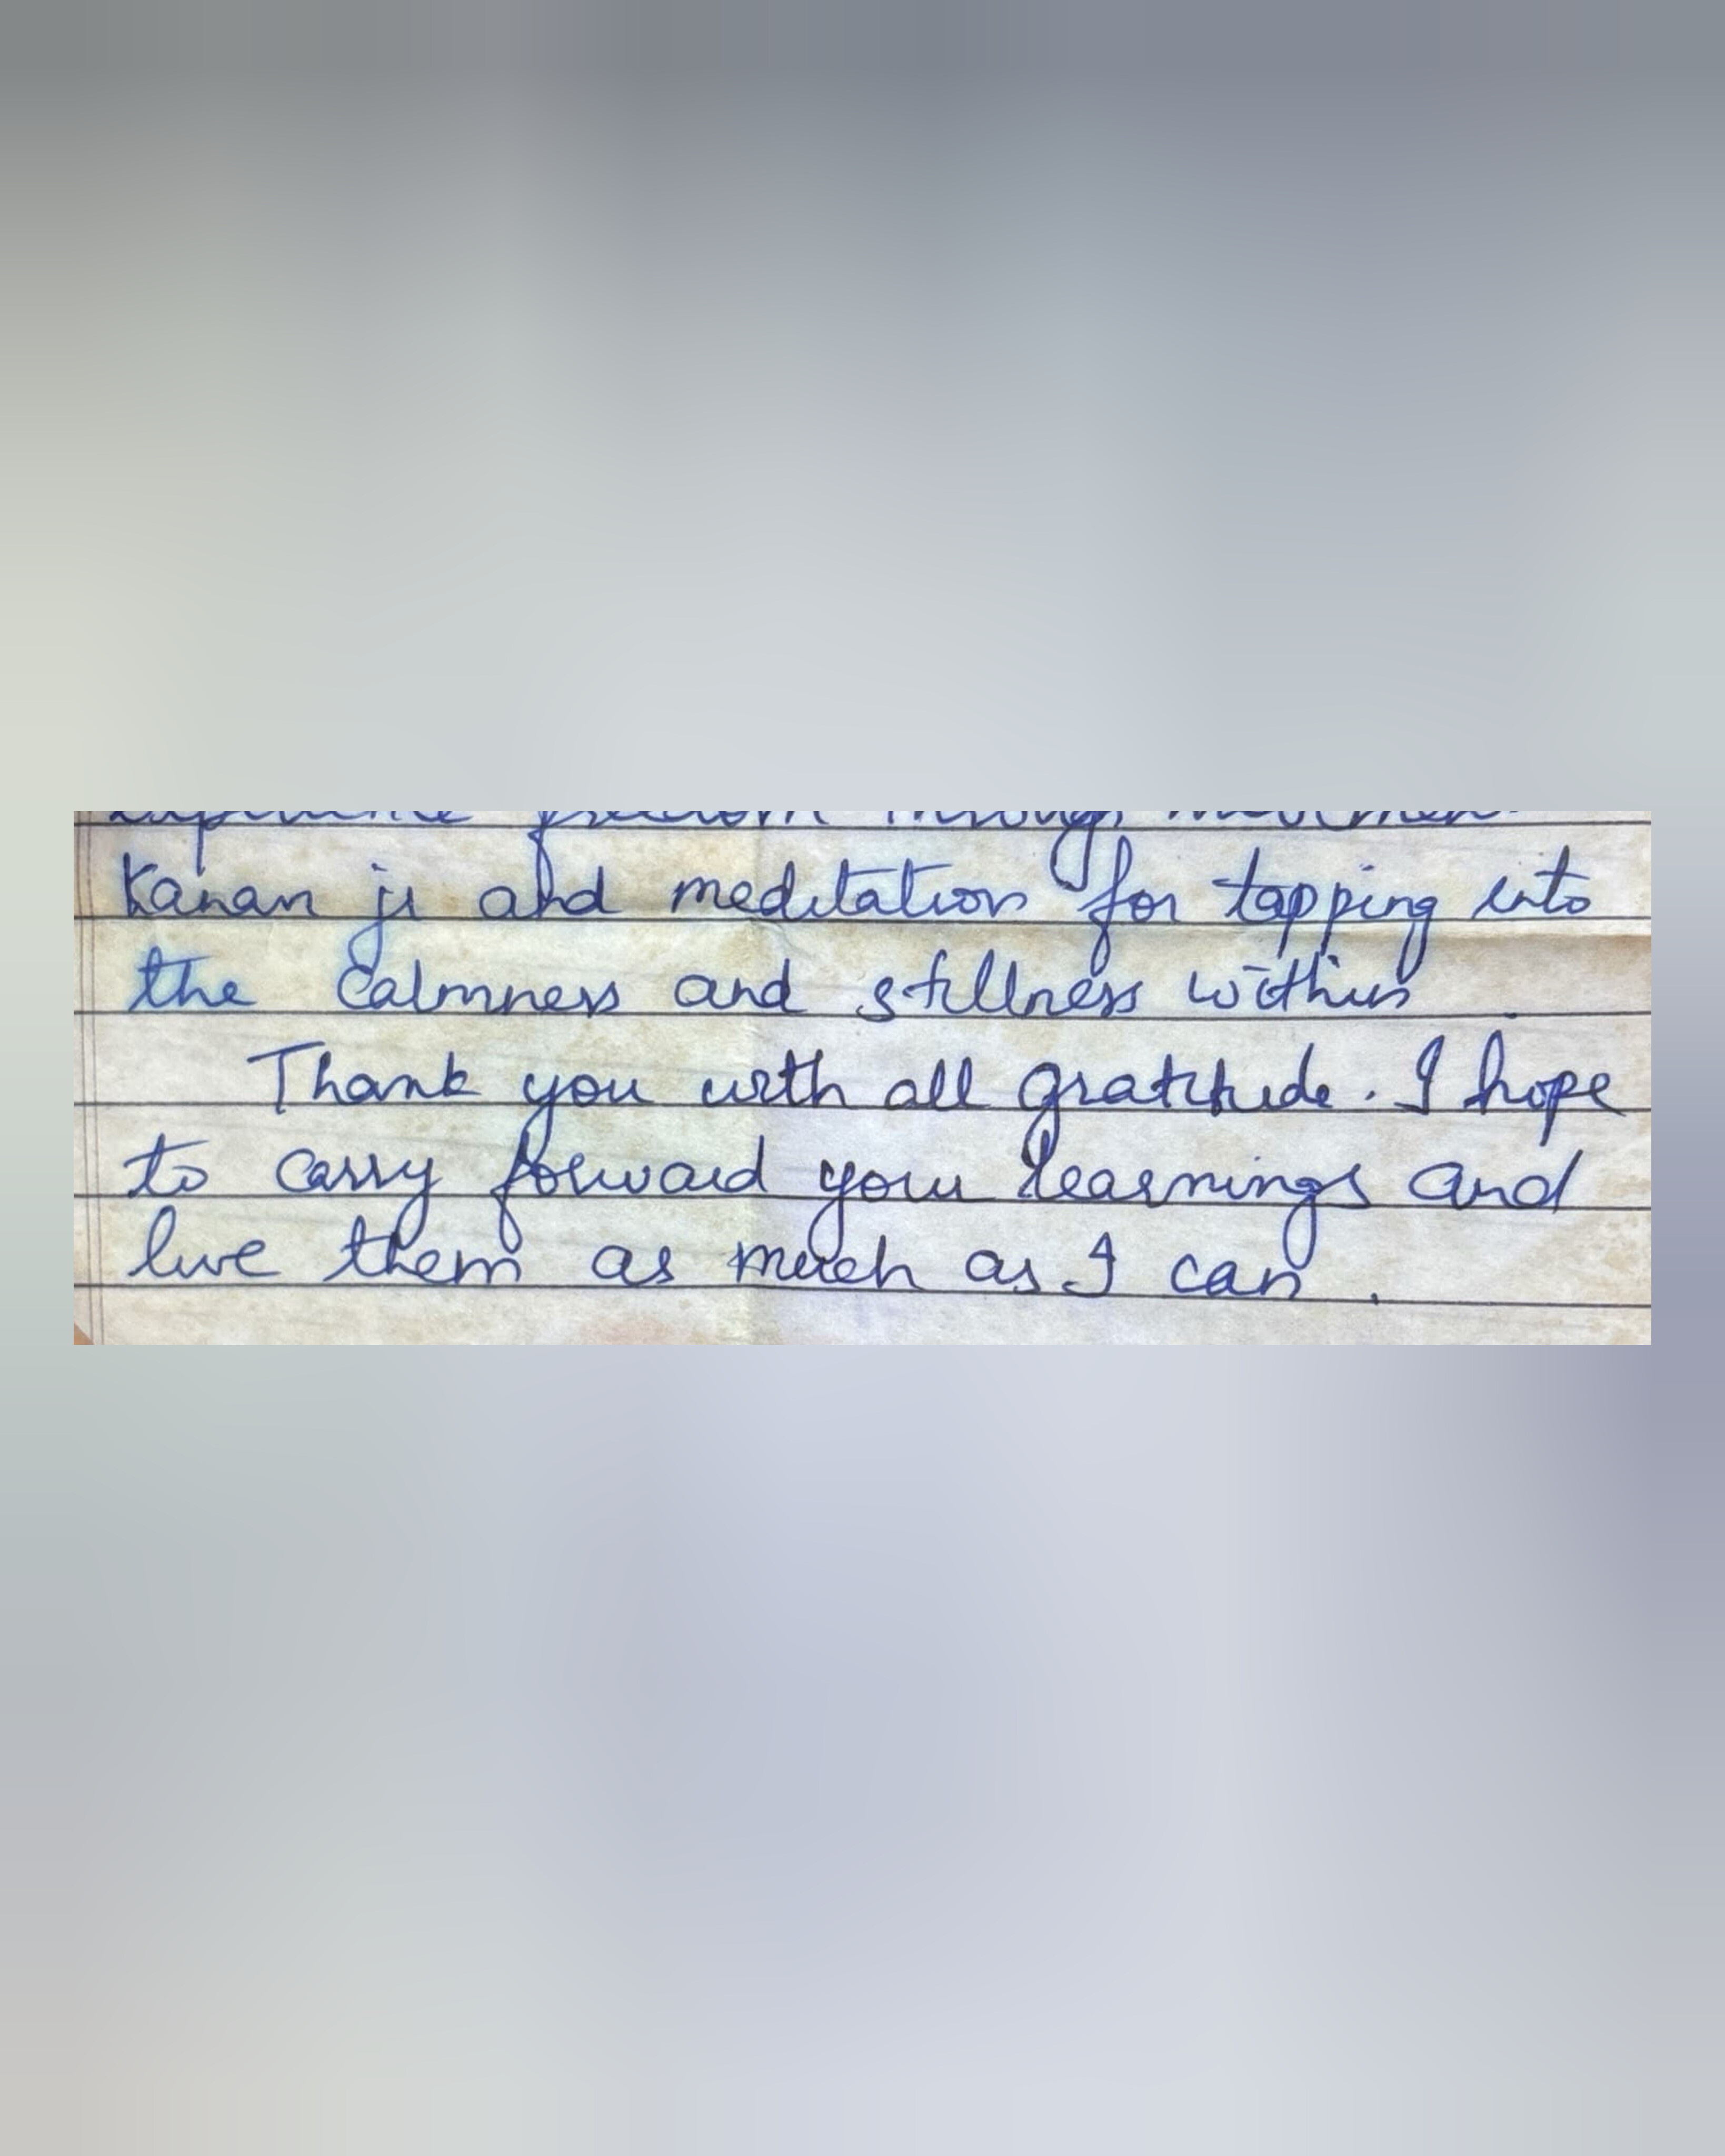 experience freedom through movement
Kanan ji and meditation for tapping into
the calmness and stillness within.
Thank you with all gratitude. I hope
to carry forward your learnings and
live them as much as I can.